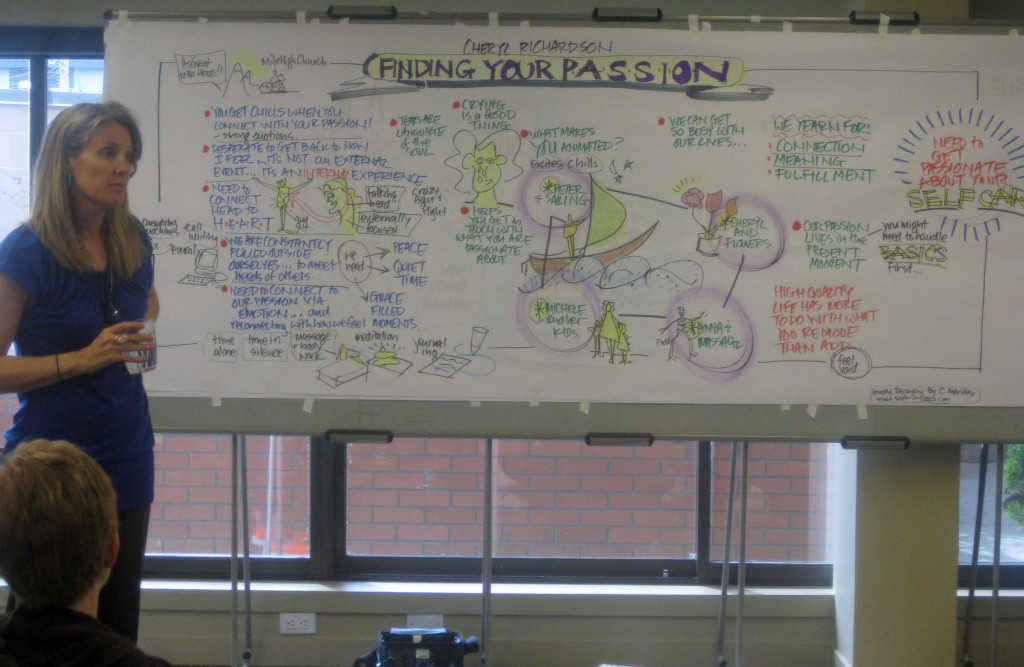 CHERYL RICHARDSON
FINDING YOUR PASSION
It's Great
to BE HERE!!
Mile High Church
• YOU GET CHILLS WHEN YOU
CONNECT WITH YOUR PASSION!!
- strong emotions
• DESPERATE to GET BACK to HOW
I FEEL... IT'S NOT an EXTERNAL
EVENT... IT'S AN INTERNAL EXPERIENCE
• NEED to
CONNECT
HEAD to
H•E•A•R•T
gut
talking
head
crazy
fight or
flight
externally
focused
answering
machines
call
waiting
email
• WE ARE CONSTANTLY
PULLED OUTSIDE
OURSELVES... to meet
needs of others
• NEED to CONNECT to
OUR PASSION VIA
EMOTION... and
reconnecting with how we feel
we
need
PEACE
QUIET
TIME
GRACE
FILLED
MOMENTS.
time
alone
time in
silence
massage
body
work
meditation
journal
ing
• TEARS ARE
LANGUAGE
of the
SOUL
• CRYING
IS a GOOD
THING
• HELPS
YOU GET in
TOUCH WITH
WHAT YOU ARE
PASSIONATE
ABOUT
• WHAT MAKES
YOU ANIMATED?
excites chills
PETER
& SAILING
CHERYL
AND
FLOWERS
MICHELE
and her
KIDS
MASSAGE
• WE CAN GET
SO BUSY WITH
OUR LIVES...
WE YEARN FOR:
• CONNECTION
• MEANING
• FULFILLMENT
• OUR PASSION
LIVES in the
PRESENT
MOMENT
you might
need to handle
BASICS
first...
NEED to
GET
PASSIONATE
ABOUT YOUR
SELF CAR
HIGH QUALITY
LIFE HAS MORE
TO DO WITH WHAT
YOU REMOVE
THAN ADD...
feel
void
Graphic Recording By C.